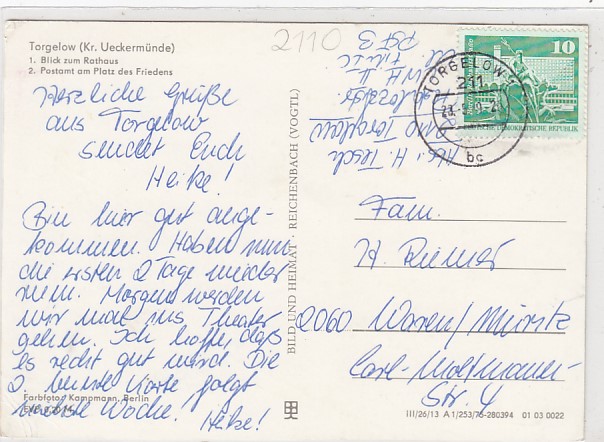 Torgelow (Kr. Ueckermünde)
1. Blick zum Rathaus
2. Postamt am Platz des Friedens
2110
Herzliche Grüße
aus Torgelow
sendet Euch
Heike!
Bin hier gut ange-
kommen. Haben nun
die ersten 2 Tage wieder
rum. Morgen werden
wir mal ins Theater
gehen. Ich hoffe, daß
es recht gut wird. Die
2. bunte Karte folgt
nächste Woche.
Heike!
Farbfoto: Kampmann, Berlin
BILD UND HEIMAT · REICHENBACH (VOGTL)
Abs.: H. Tesch
2110 Torgelow
TORGELOW
211
bc
10
DEUTSCHE DEMOKRATISCHE REPUBLIK
Fam.
H. Riemer
2060 Waren/Müritz
Carl-Moltmann-
Str. 4
III/26/13 A 1/253/76-280394 01 03 0022